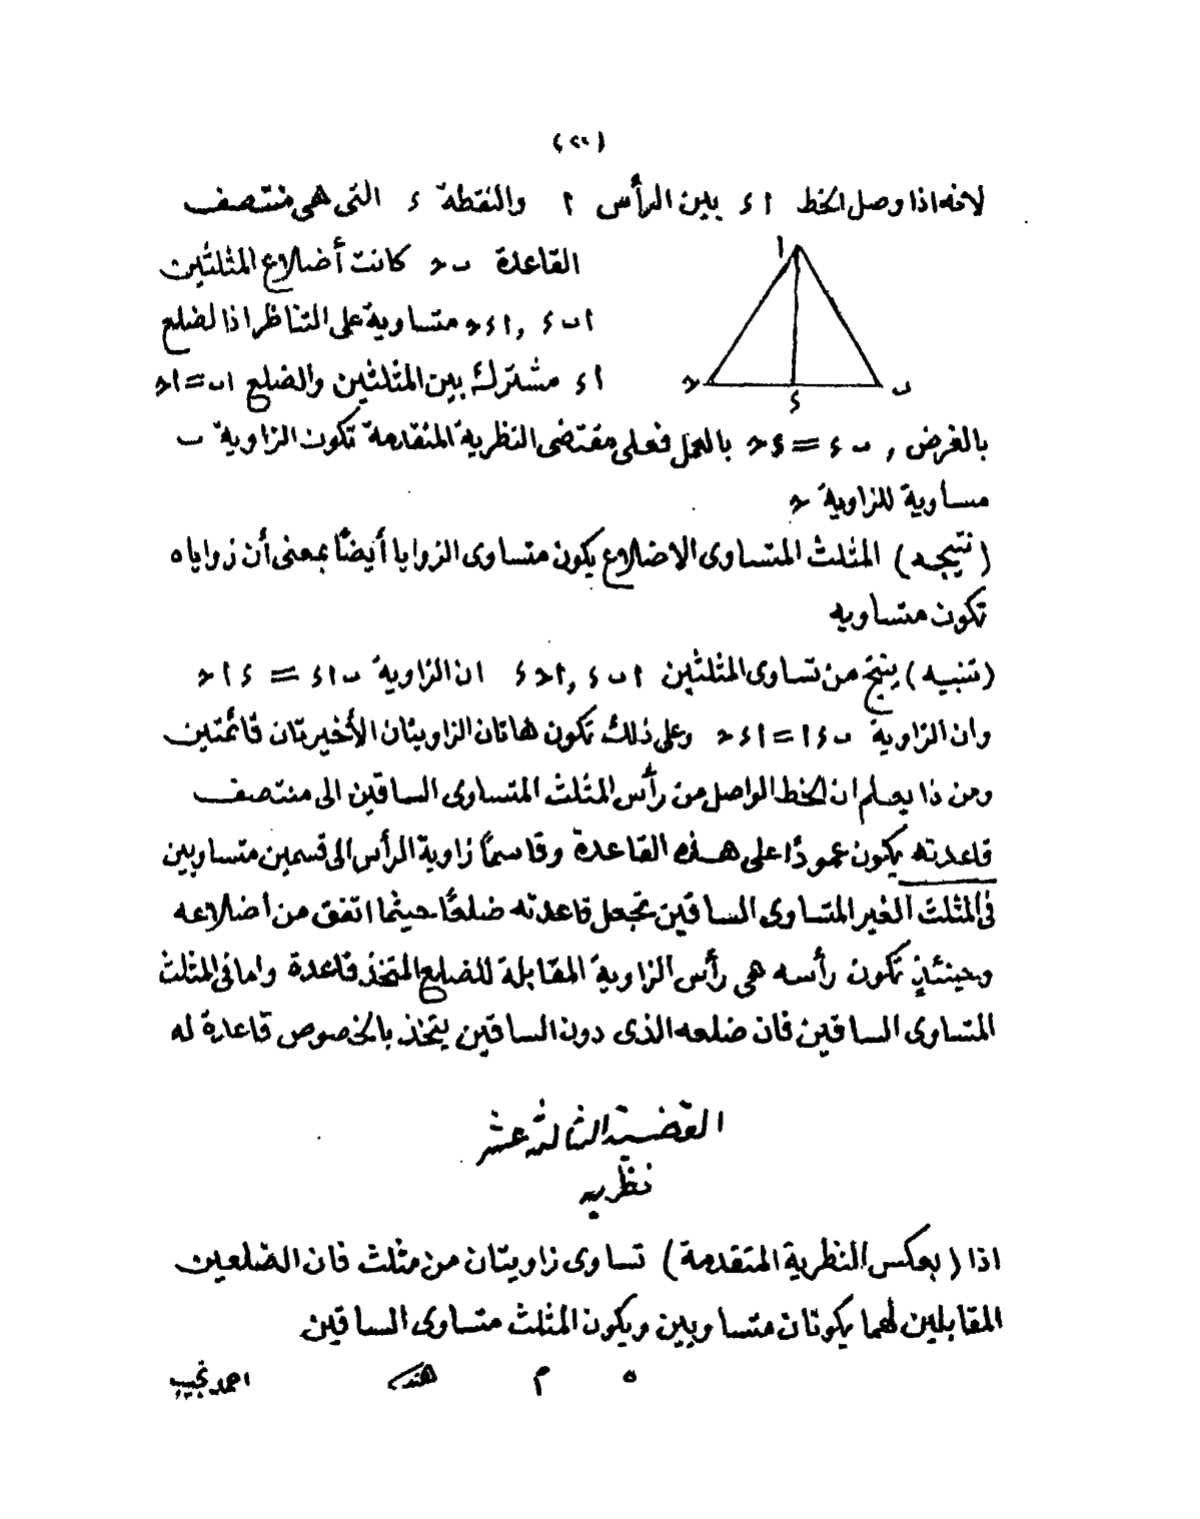 (٢٢)
لانه اذا وصل الخط ا ء بين الرأس ا والنقطة ء التى هى منتصف
القاعدة ب ح كانت أضلاع المثلثين
ا ب ء , ا ء ح متساوية على التناظر اذا لضلع
ا ء مشترك بين المثلثين والضلع ا ب = ا ح
بالفرض , ب ء = ء ح بالعمل فعلى مقتضى النظرية المتقدمة تكون الزاوية ب
مساوية للزاوية ح
(نتيجه) المثلث المتساوى الاضلاع يكون متساوى الزوايا أيضًا بمعنى أن زواياه
تكون متساويه
(تنبيه) ينتج من تساوى المثلثين ا ب ء , ا ح ء ان الزاوية ب ا ء = ء ا ح
وان الزاوية ب ء ا = ا ء ح وعلى ذلك تكون هاتان الزاويتان الأخيرتان قائمتين
ومن ذا يعلم ان الخط الواصل من رأس المثلث المتساوى الساقين الى منتصف
قاعدته يكون عمودًا على هذه القاعدة وقاسمًا زاوية الرأس الى قسمين متساويين
فى المثلث الغير المتساوى الساقين تجعل قاعدته ضلعًا حيثما اتفق من اضلاعه
وحينئذٍ تكون رأسه هى رأس الزاوية المقابلة للضلع المتخذ قاعدة واما فى المثلث
المتساوى الساقين فان ضلعه الذى دون الساقين يتخذ بالخصوص قاعدة له
ا
ح
ء
ب
القضية الثالثة عشر
نظريه
اذا (بعكس النظرية المتقدمة) تساوى زاويتان من مثلث فان الضلعين
المقابلين لهما يكونان متساويين ويكون المثلث متساوى الساقين
٥ م هندسه احمد نجيب